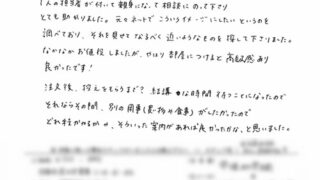 1人の担当者が付いて親身になって相談にのって下さり
とても助かりました。元々ネットでこういうイメージにしたいというのを
調べており、それを見せてなるべく近いようなものを探して下さりました。
なかなかお値段しましたが、やはり部屋につけると高級感あり
良かったです！
注文後、控えをもらうまで？結構な時間待つことになったので
それならその間、別の用事(買い物や食事)がしたかったので
どれ位かかるか、そういった案内があれば良かったかな、と思いました。